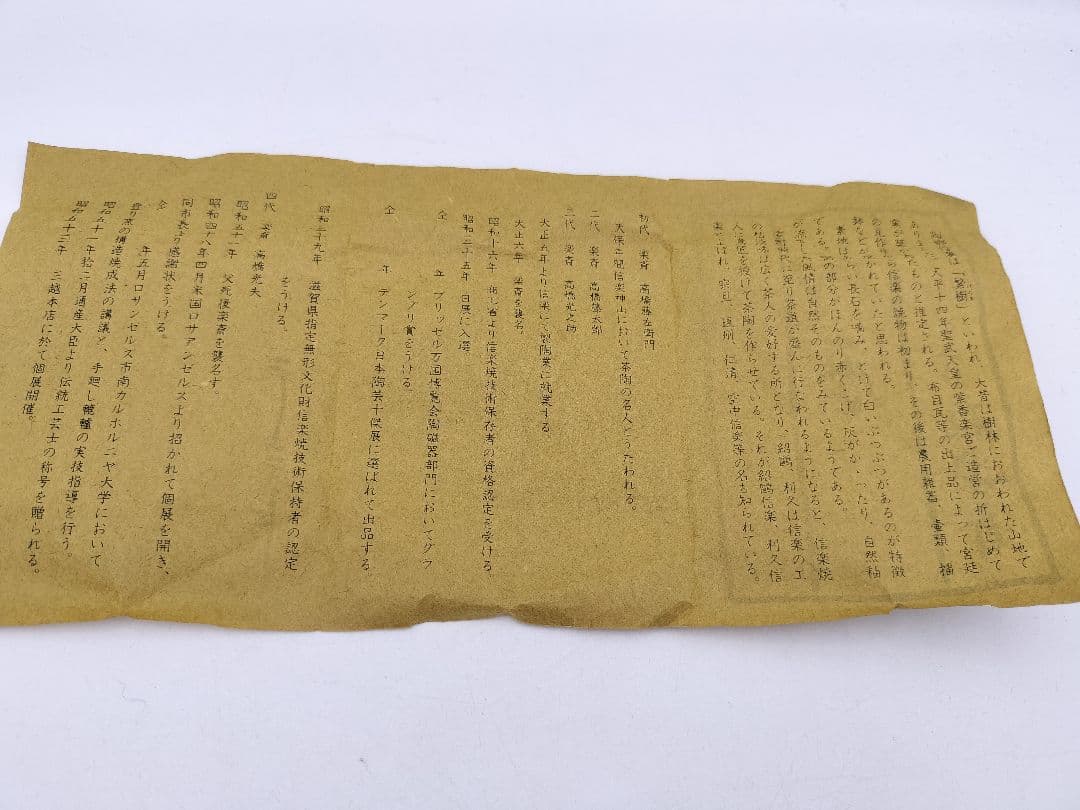 信楽は「繁樹」といわれ、大昔は樹林におおわれた山地で
ありました。天平十四年聖武天皇の紫香楽宮ご造営の折はじめて
たものと推定される。布目瓦等の出土品によって宮廷
信楽の焼物は初まり、その後は農用雑器、壷類、擂
鉢などが焼かれていたと思われる。
素地はあらい長石を噛み、とけて白いぶつぶつがあるのが特徴
である。の部分がほんのり赤くこげ、灰がかかったり、自然釉
た風情は自然そのものをみているようである。
時代に至り茶道が盛んに行なわれるようになると、信楽焼
の は広く茶人の愛好する所となり、紹鴎、利久は信楽の工
人に意匠を授けて茶陶を作らせている。それが紹鴎信楽、利久信
楽とよばれ、宗旦、遠州、仁清、空中信楽等の名も知られている。
初代 楽斎 高橋藤左衛門
天保年間信楽神山において茶陶の名人とうたわれる。
二代 楽斎 高橋藤太郎
三代 楽斎 高橋光之助
大正五年より信楽にて製陶業に就業する
大正六年 楽斎を襲名。
昭和十六年 商工省より信楽焼技術保存者の資格認定を受ける
昭和二十五年 日展に入選
仝 年 ブリッセル万国博覧会陶磁器部門においてグラン
プリ賞をうける。
仝 年 デンマーク日本陶芸十傑展に選ばれて出品する
昭和三十九年 滋賀県指定無形文化財信楽焼技術保持者の認定
をうける、
四代 楽斎 高橋光夫
昭和五十一年 父死後楽斎を襲名す。
昭和四十八年四月米国ロサアンゼルスより招かれて個展を開き、
同市長より感謝状をうける。
仝 年五月ロサンゼルス市南カルホルニヤ大学において
登り窯の構造焼成法の講議と、手廻し轆轤の実技指導を行う。
昭和五十一年拾二月通産大臣より伝統工芸士の称号を贈られる。
昭和五十三年 三越本店に於て個展開催。